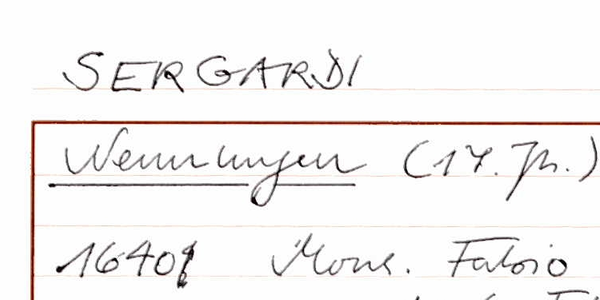 SERGARDI
Nennungen (17. Jh.)
1640 Mons. Fabio